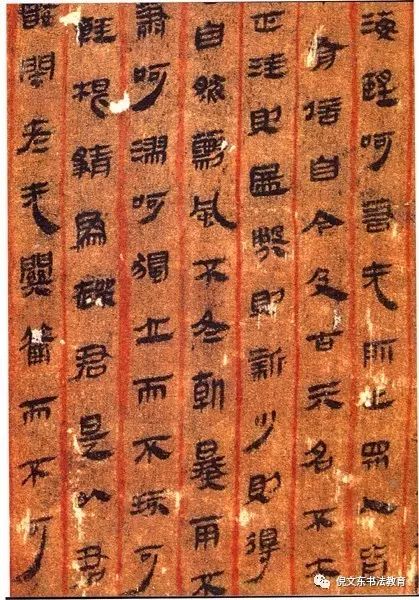 海朢呵若无所止眾人皆
有信自今及古亓名不去
正洼則盈則新少則得
自然䬓風不冬朝暴雨不
蕭呵漻呵獨立而不玹可
輕根靜為趮君是以君
善閉者无關籥而不可
倪文东书法教育